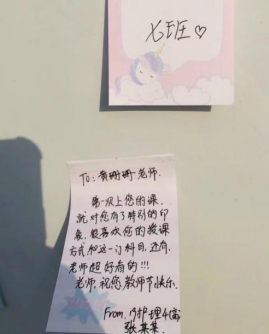 七班♡
To: 黄珊珊老师.
第一次上您的课,
就对您有了特别的印
象.很喜欢您的教课
方式和这一门科目,还有.
老师超好看的!!!
老师,祝您教师节快乐.
From. 护理4高
张某某.